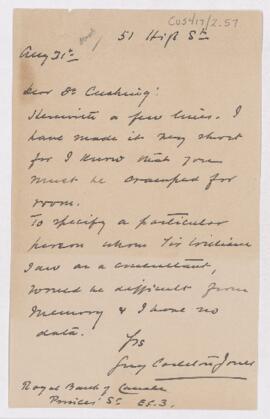 CUS417/2.57
51 High St
Aug 31st
Dear Dr Cushing:
Herewith a few lines. I
have made it very short
for I know that you
must be cramped for
room.
To specify a particular
person whom Sir William
saw as a consultant,
would be difficult from
memory & I have no
data.
Yrs
Guy Carleton Jones
Royal Bank of Canada
Princes' St E.C.3.